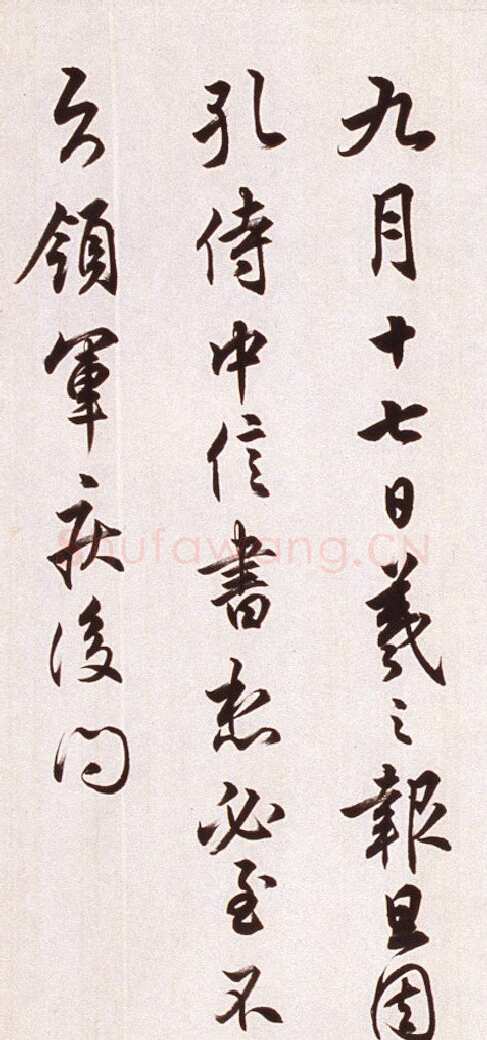 九月十七日羲之報且因
孔侍中信書想必至不
知領軍疾後問
Shufawang.CN